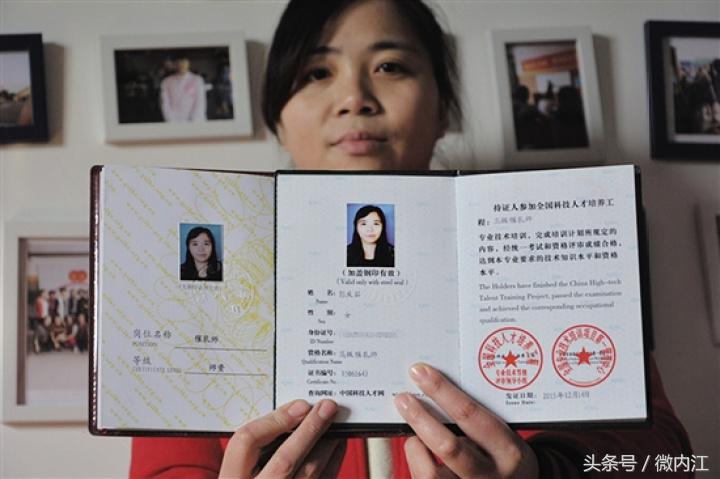 岗位名称
POSITION
催乳师
等级
CERTIFICATE LEVEL
师资
(加盖钢印有效)
(Valid only with steel seal)
姓 名
Name
性 别
女
Sex
身份证号
ID Number
资格名称
高级催乳师
Qualification Name
证书编号
Certificate No.
查询网址: 中国科技人才网
持证人参加全国科技人才培养工
程: 高级催乳师
专业技术培训, 完成培训计划所规定的
内容, 经统一考试和资格评审成绩合格,
达到本专业要求的技术知识水平和资格
水平。
The Holders have finished the China High-tech
Talent Training Project, passed the examination
and achieved the corresponding occupational
qualification.
专业技术等级
评审领导小组
发证日期: 2015年12月14日
Issue Date:
头条号 / 微内江